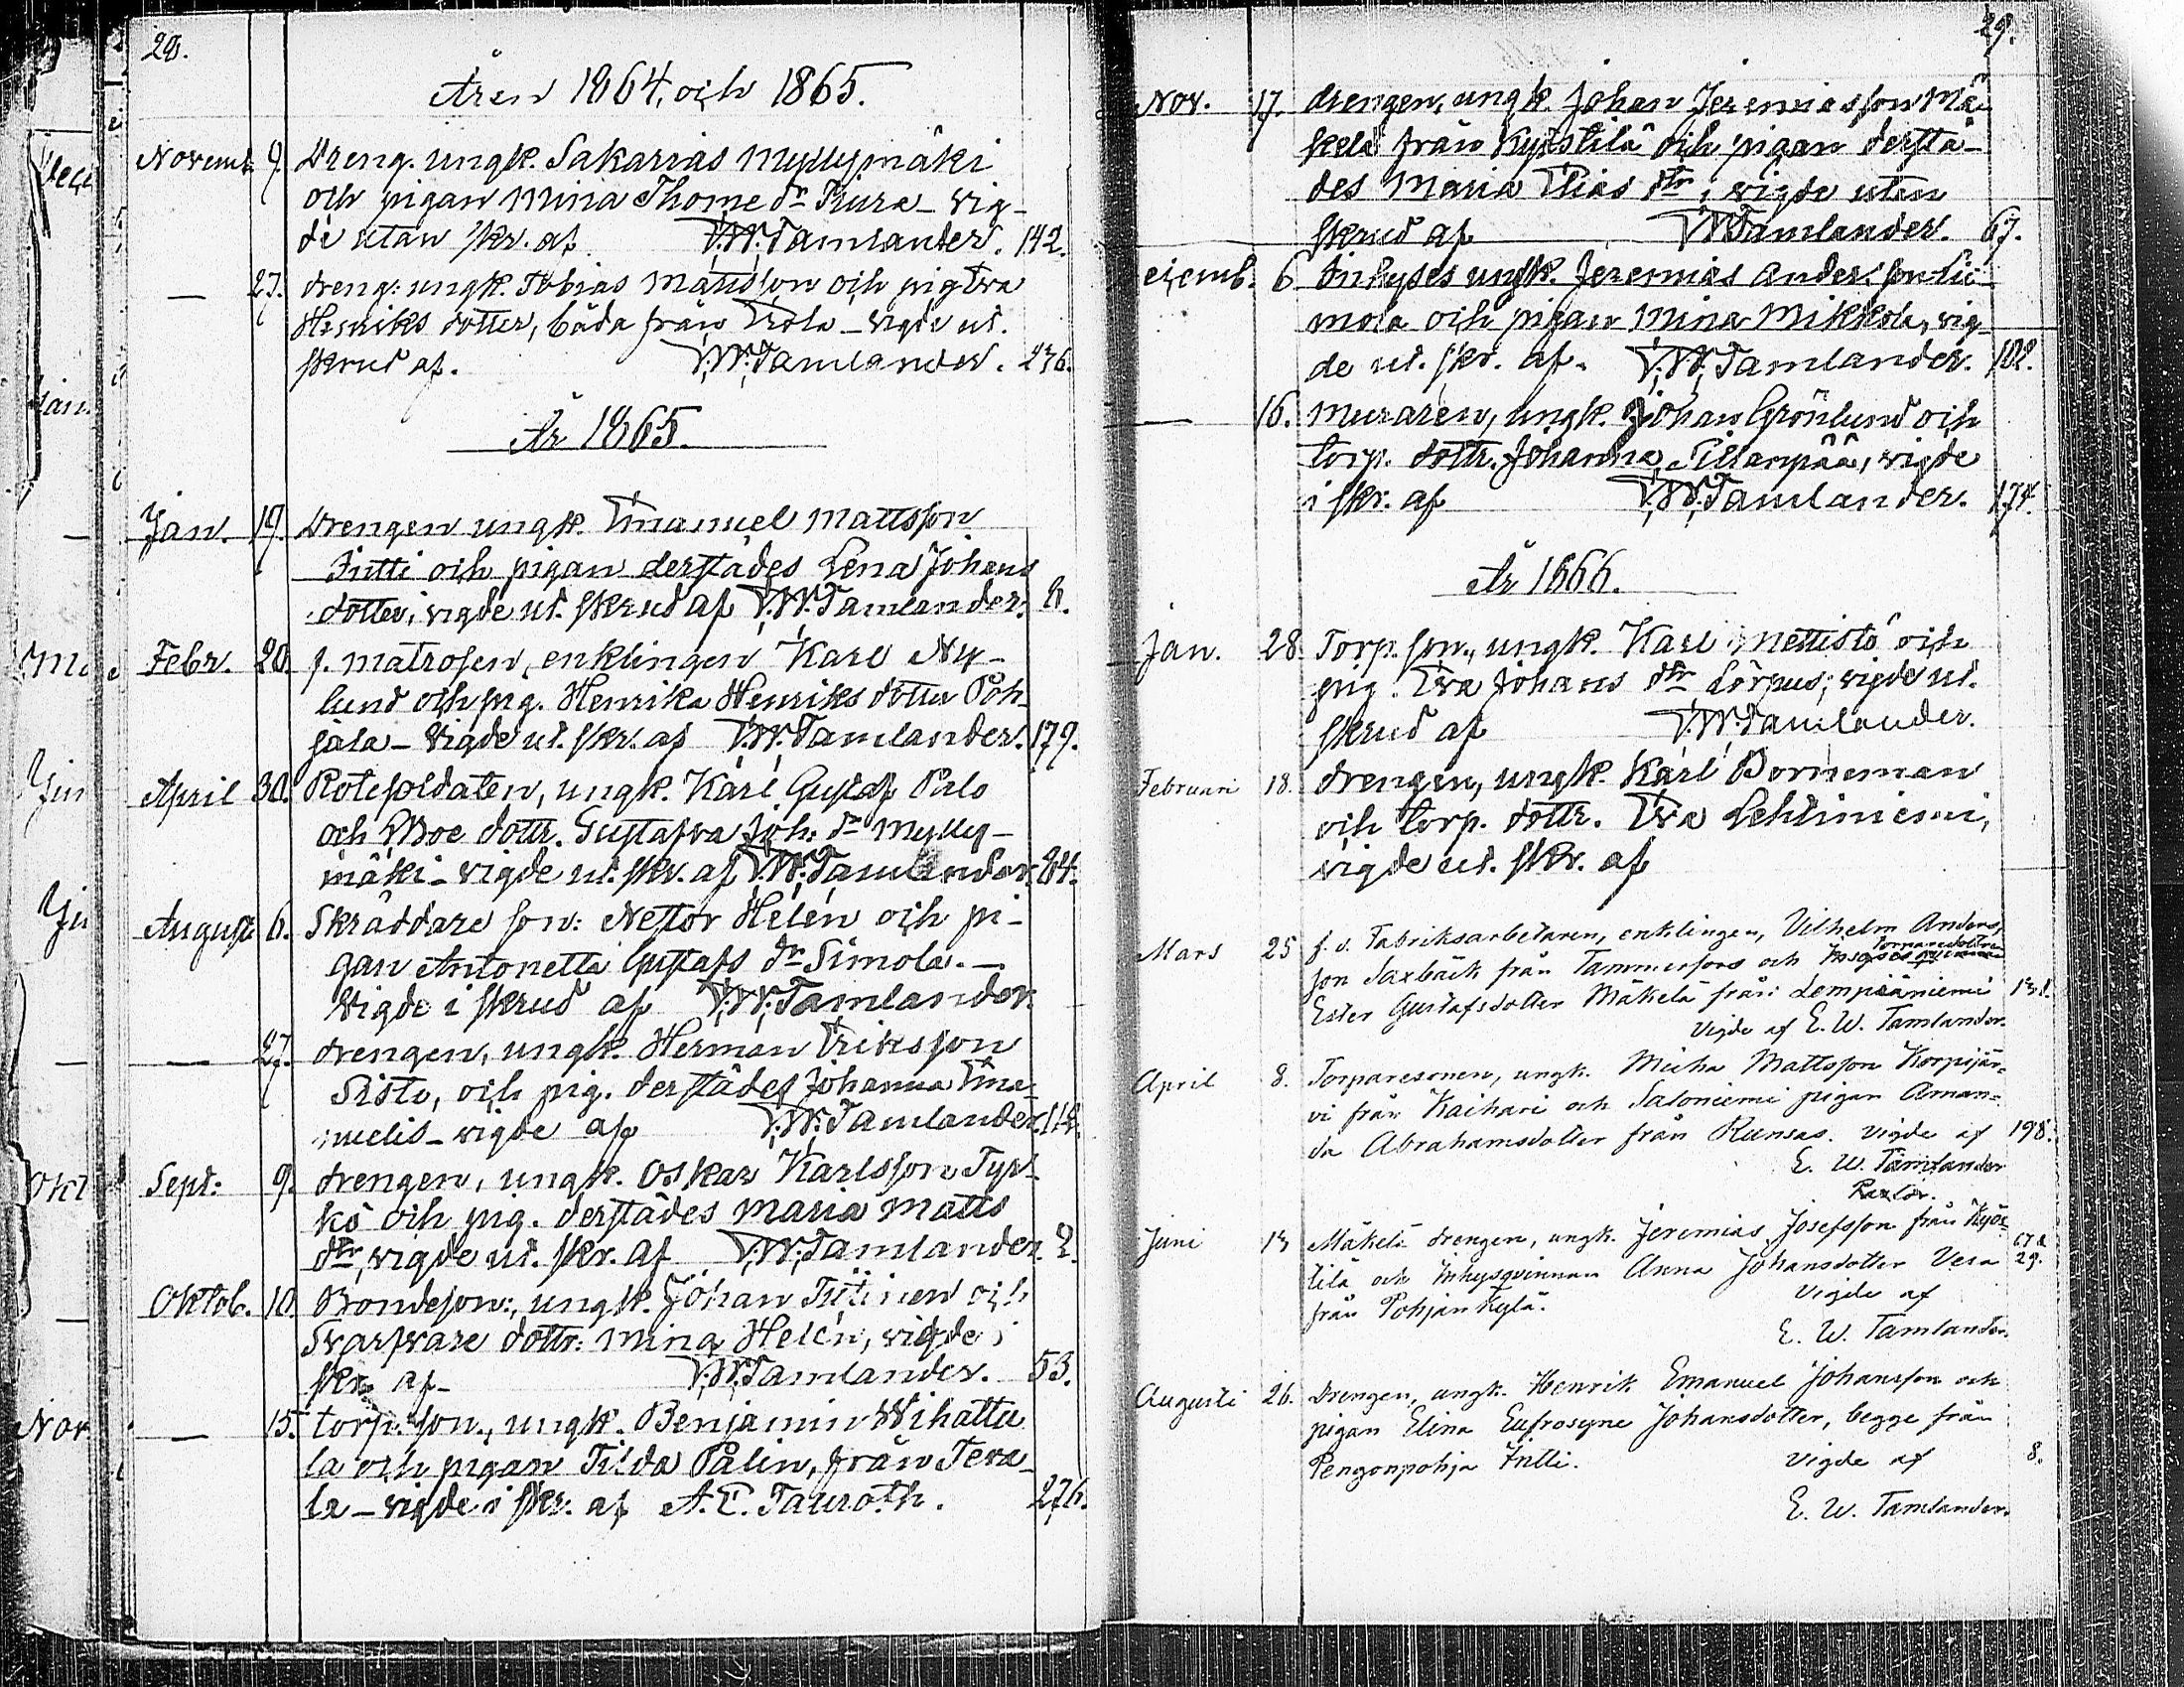 28.
Åren 1864, och 1865.
Novemb. 9. Dreng. ungk. Sakarias Myllymäki
och pigan Mina Thome dr Piura - vig-
de utan skr. af V.W.Tamlander. 142.
— 27. dreng: ungk. Tobias Mattsson och pig Eva
Henriks dotter, båda från Erola - vigde ut.
skrud af. V.W.Tamlander. 276.
År 1865.
Jan. 19. Drengen ungk. Emanuel Mattsson
Jutti och pigan derstädes Lena Johans
dotter, vigde ut. skrud af V.W.Tamlander. 8.
Febr. 20. f. matrosen, enklingen Karl Ny-
lund och pig. Henrika Henriks dotter Poh-
jala - Vigde ut. skr. af V.W.Tamlander. 179.
April 30. Rotesoldaten, ungk. Karl Gustaf Palo
och Boe dottr. Gustafva Joh: dr Mylly-
mäki - vigde ut. skr. af V.W.Tamlander. 84.
August 6. Skräddare son: Nestor Helén och pi-
gan Antonetta Gustafs dr Simola. —
Vigde i skrud af V.W.Tamlander.
— 27. drengen, ungk. Herman Eriksson
Sisto, och pig. derstädes Johanna Ema-
nuelis - vigde af V.W.Tamlander. 114.
Sept: 9. drengen, ungk. Oskar Karlsson Typ-
kö och pig. derstädes Maria Matts
dtr, vigde ut. skr. af V.W.Tamlander. 2.
Oktob. 10. Bondeson:, ungk. Johan Jutinen och
Svarfvare dottr: Mina Helén, vigde i
skr. af - V.W.Tamlander. 53.
— 15. torp. son., ungk. Benjamin Wihattu
la och pigan Tilda Palin, från Tera-
la - vigde i skr. af A. E. Tauroth. 276.
29.
Nov. 17. drengen, ungk. Johan Jeremiasson Mä-
kelä från Kyöstilä och pigan derstä-
des Maria Elias dtr, vigde utan
skrud af V.W.Tamlander. 67.
ecemb. 6. Inhyses ungk. Jeremias Anders son Li-
mola och pigan Mina Mikkola, vig-
de ut. skr. af. V.W.Tamlander. 102.
— 16. muraren, ungk. Johan Grönlund och
torp. dottr. Johanna Sillanpää, vigde
i skr. af V.W.Tamlander. 174.
År 1866.
Jan. 28 Torp. son., ungk. Karl Mettistö och
pig. Eva Johans dtr Lörpus; vigde ut.
skrud af V.W.Tamlander.
Februari 18. drengen, ungk. Karl Borneman
och torp. dottr. Eva Lehtiniemi,
vigde ut. skr. af
Mars 25 f. d. Fabriksarbetaren, enklingen, Vilhelm Anders-
son Saxbäck från Tammerfors och torparedottren
Ester Gustafsdotter Mäkelä från Lempiäniemi 131.
Vigde af E. W. Tamlander.
April 8. Torparesonen, ungk. Micha Mattsson Korpijär-
vi från Kaihari och Saloniemi pigan Aman-
da Abrahamsdotter från Runsas. vigde af 198.
E. W. Tamlander
Pastor.
Juni 13 Mäkelä drengen, ungk. Jeremias Josefsson från Kyös-
tilä och Inhysqvinnan Anna Johansdotter Vesa 67 & 29.
från Pohjankylä. Vigde af
E. W. Tamlander.
Augusti 26. Drengen, ungk. Henrik Emanuel Johansson och
pigan Elina Eufrosyne Johansdotter, begge från
Pengonpohja Jutti. vigde af 8.
E. W. Tamlander.